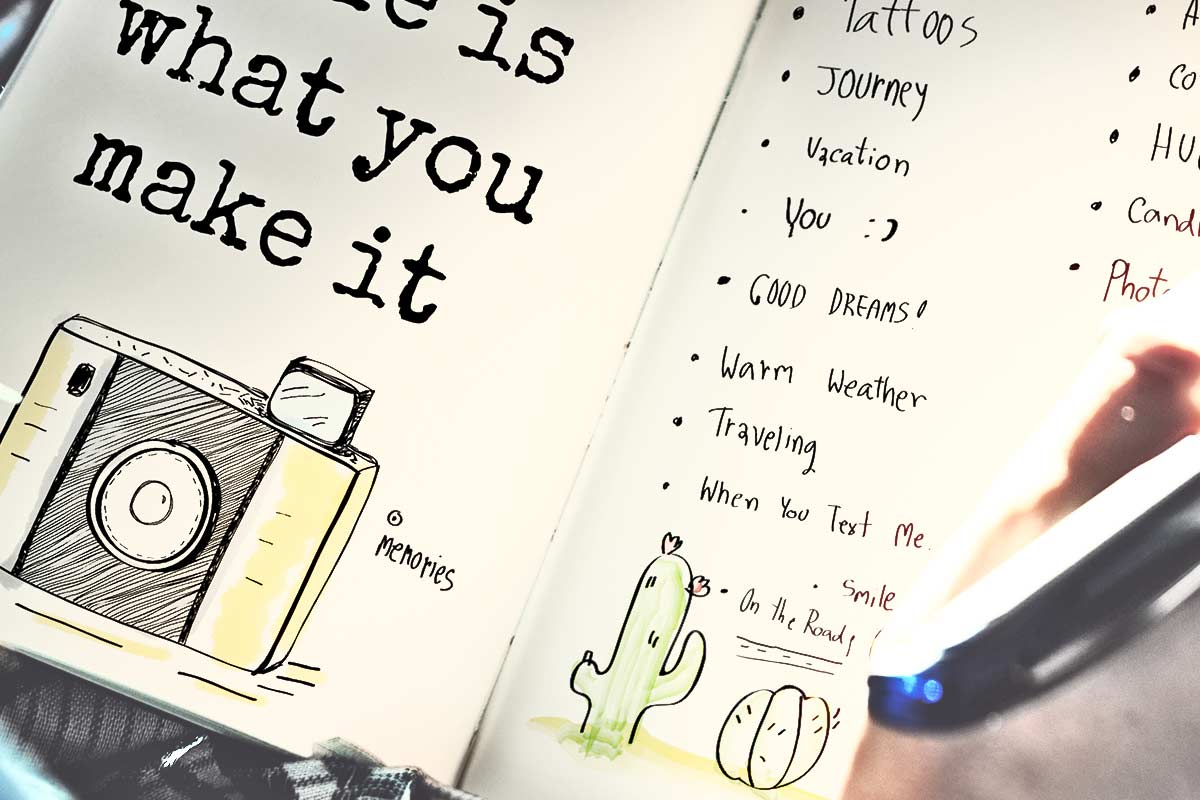 is
what you
make it
memories
Tattoos
JOURney
Vacation
You :)
GOOD DREAMS!
Warm Weather
Traveling
When You Text Me.
Smile
On the Road